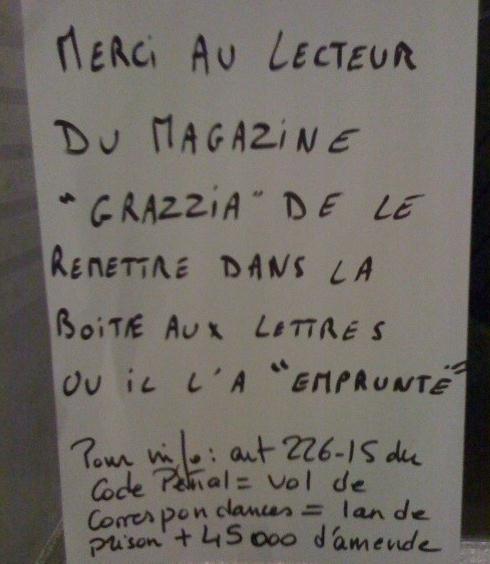 MERCi AU LECTEUR
DU MAGAZiNE
"GRAZZiA" DE LE
REMETTRE DANS LA
BOiTE AUX LETTRES
OU iL L'A "EMPRUNTÉ"
Pour info : art 226-15 du
Code Pénal = vol de
correspondances = 1 an de
prison + 45000 d'amende